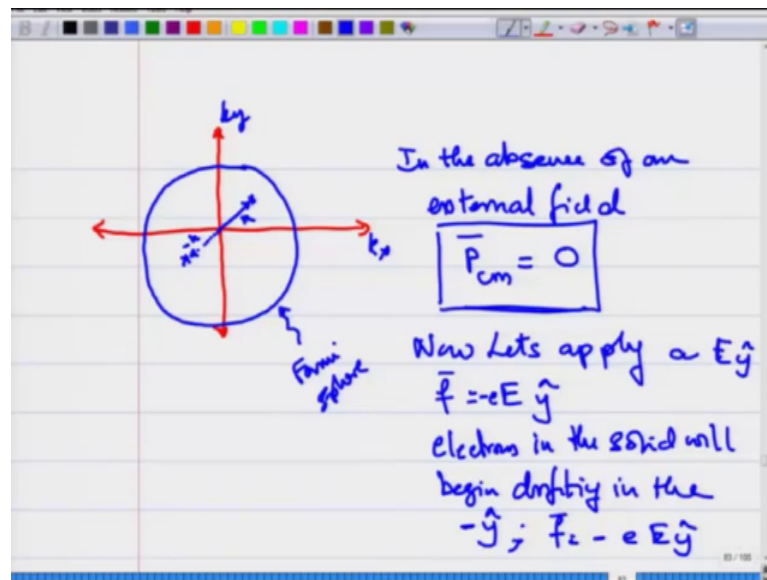 ky
kx
Fermi
sphere
In the absence of an
external field
P̅cm = 0
Now Lets apply a E ŷ
f̅ = -eE ŷ
electrons in the solid will
begin drifting in the
-ŷ ; f̅ = - e E ŷ
83 / 100